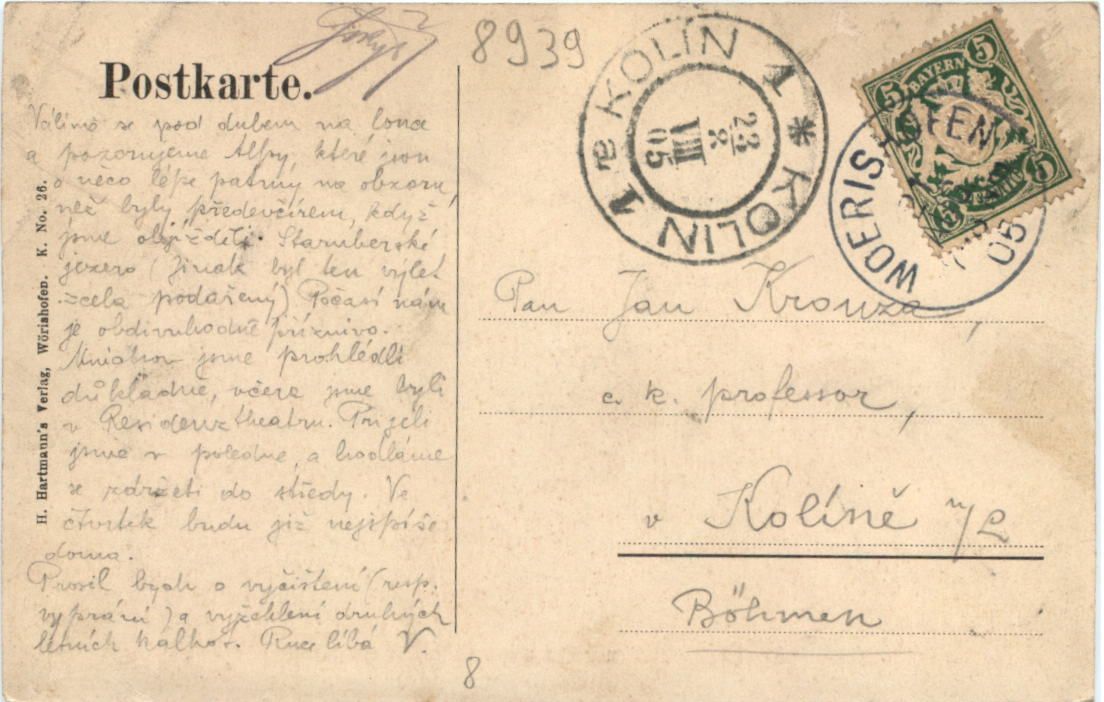 Postkarte.
8939
KOLÍN 1 * KOLIN 1
23
8
VIII
05
BAYERN
5
5
5
WOERISHOFEN
05
Válíme se pod dubem na louce
a pozorujeme Alpy, které jsou
o něco lépe patrny na obzoru
než byly předevčírem, když
jsme objížděli Starnberské
jezero (Jinak byl ten výlet
zcela podařený) Počasí nám
je obdivuhodně příznivo.
Mnichov jsme prohlédli
důkladně, včera jsme byli
v Residenztheatru. Přijeli
jsme v poledne a hodláme
se zdržeti do středy. Ve
čtvrtek budu již nejspíše
doma.
Prosil bych o vyčištění (resp.
vyprání) a vyžehlení druhých
letních kalhot. Ruce líbá V.
H. Hartmann's Verlag, Wörishofen. K. No. 26.
Pan Jan
c. k. professor,
v Kolíně n/L
Böhmen
8